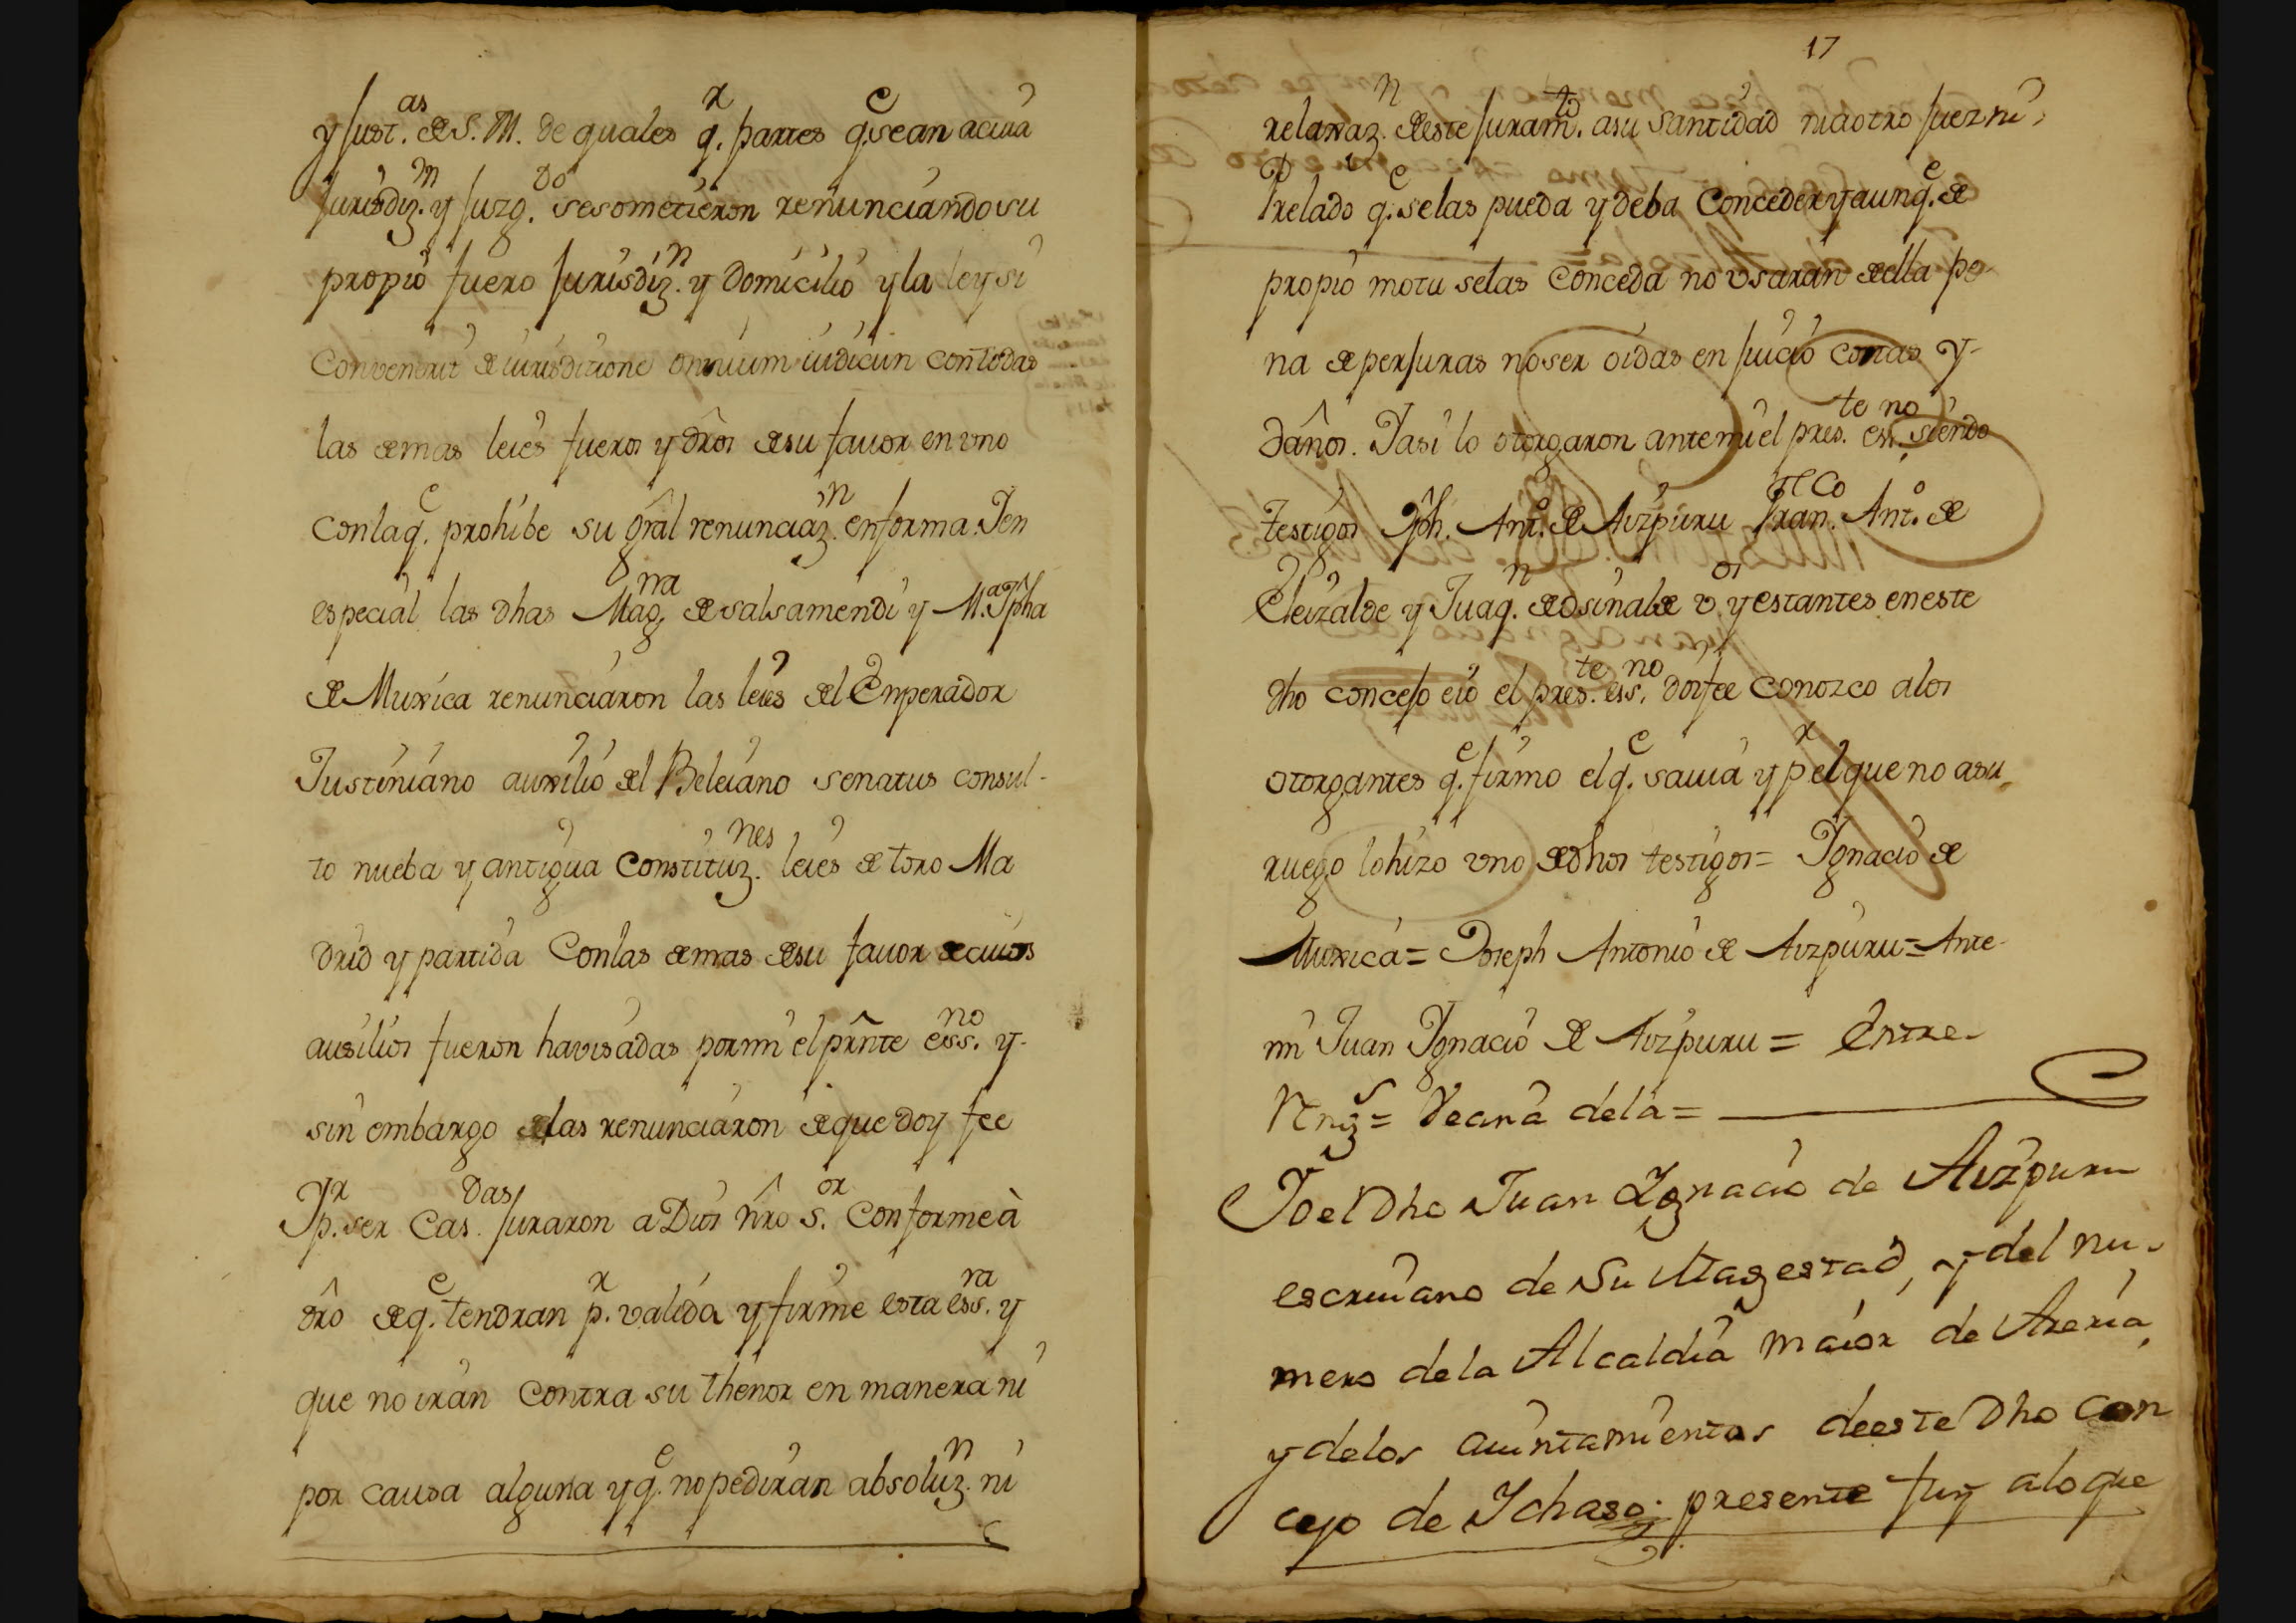 y Just.as de S. M. de quales q.r partes q.e sean a cuia
Jurisdiz.n y Juzg.do se sometieron renunciando su
propio fuero Jurisdiz.n y Domicilio y la ley si
Convenerit de iurisditione omnium iudicun con todas
las demas leies fueros y dr̂os de su fauor en vno
con la q.e prohibe su gr̂al renunciaz.n en forma. Y en
especial las dhas Mag.na de salsamendi y M.a Jpha
de Muxica renunciaron las leies del Emperador
Justiniano auxilio del Beleiano senatus consul-
to nueba y antigua Constituz.nes leies de toro Ma
drid y partida Con las demas de su fauor de cuios
ausilios fueron havisadas por mi el pr̂nte ess.no y-
sin embargo de las renunciaron de que doy fee
Y p.r ser Cas.das Juraron a Dios nr̂o s.or Conforme à
dr̂o de q.e tendran p.r valida y firme esta ess.ra y
que no iran Contra su thenor en manera ni
por causa alguna y q.e no pediran absoluz.n ni
17
relaxaz.n de este Juram.to a su Santidad ni a otro Juez ni
Prelado q.e se las pueda y deba Conceder y aunq.e de
propio motu se las Conceda no vsaran de ella pe-
na de perJuras no ser oidas en Juicio costas y-
daños. Y asi lo otorgaron ante mi el pres.te ess.no siendo
testigos Jph. Ant.o de Aizpuru Fran.co Ant.o de
Eleizalde y Juaq.n de osinalde v.os y estantes en este
dho conceJo e io el pres.te ess.no doi fee Conozco a los
otorgantes q.e firmo el q.e sauia y p.r el que no a su
ruego lo hizo vno de dhos testigos = Ygnacio de
Muxica = Joseph Antonio de Aizpuru = Ante
mi Juan Ygnacio de Aizpuru = Entre-
= Veana de la =
Yo el Dho Juan Ygnacio de Aizpuru
escriuano de Su Magestad, y del nu-
mero de la Alcaldia maior de Areria,
y de los aiuntamientos de este Dho Con
cejo de Ichaso presente fuy a lo que